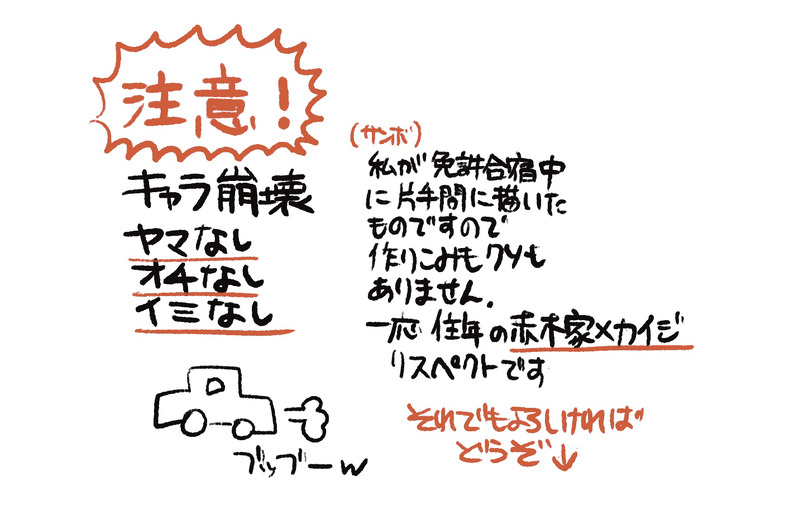 注意!
キャラ崩壊
ヤマなし
オチなし
イミなし
ブッブーw
(サンボ)
私が免許合宿中
に片手間に描いた
ものですので
作りこみもクソも
ありません.
一応 住年の赤木家×カイジ
リスペクトです
それでもよろしければ
どうぞ↓